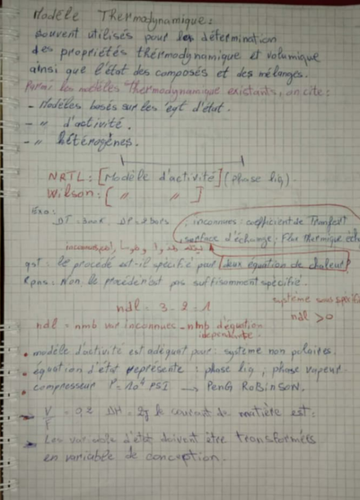 Modèle Thermodynamique:
peuvent utilisés pour les détermination
des propriétés thérmodynamique et volumique
ainsi que l'état des composés et des mélanges.
Parmi les modèles thermodynamique existants, on cite:
- Modéles basés sur les éqt d'état.
- " d'activité.
- " hétérogènes.
NRTL: [Modèle d'activité] (phase liq).
Wilson: [ " " ]
Exo:
inconnues: coefficient de Transfert
surface d'échange; Flux thermique
qst: le procédé est-il spécifié pour deux équation de chaleur?
Rpns: Non le n'est pas suffisamment spécifié.
ndl = 3 - 2 = 1
système sous spécifié
ndl > 0
ndl = nmb var inconnues - nmb d'équation
indépendante
• modèle d'activité est adéquat pour: système non polaires.
• équation d'état represente: phase liq; phase vapeur
• compresseur PSI → PenG RoBinSON.
- V/F = 0,2 le courant de matière est:
- Les variable d'état doivent être transformées
en variable de conception.